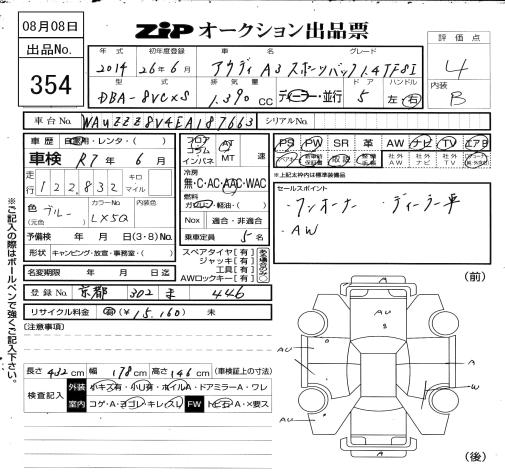 08月08日
ZiP オークション出品票
出品No.
354
評価点
4
内装
B
年式 初年度登録 車名 グレード
2014 26年6月 アウディ A3 スポーツバック 1.4TFSI
型式 排気量 ドア ハンドル
DBA-8VCXS 1.390cc ディーラー・並行 5 左・右
車台No. WAUZZZ8V4EA187663 シリアルNo.
車歴 自家用・レンタ・( )
車検 R7年6月
走行 122,832 キロ マイル
色 ブルー (元色) カラーNo. LX5Q 内装色
予備検 年 月 日(3・8)No.
形状 キャンピング・放宣・事務室・( )
名変期限 年 月 日迄
フロア コラム インパネ AT MT 速
冷房
無・C・AC・AAC・WAC
燃料
ガソリン・軽油・( )
Nox 適合・非適合
乗車定員 5名
スペアタイヤ[有]
ジャッキ[有]
工具[有]
AWロックキー[有]
PS PW SR 革 AW ナビ TV エアB
取説 社外AW 社外ナビ 社外TV
※上記太枠内は標準装備品
セールスポイント
・ワンオーナー ・ディーラー車
・AW
登録No. 京都 302 ま 446
リサイクル料金 有(¥15,160) 未
(注意事項)
長さ 432cm 幅 178cm 高さ 146cm (車検証上の寸法)
検査記入 外装 小キズ有・小U有・ホイルA・ドアミラーA・ワレ
室内 コゲ・A・ヨゴレ・キレ・スレ FW トビ石・A・X要ス
※ご記入の際はボールペンで強くご記入下さい。
(前)
AU
8
AU
A
A
W
AU
(後)